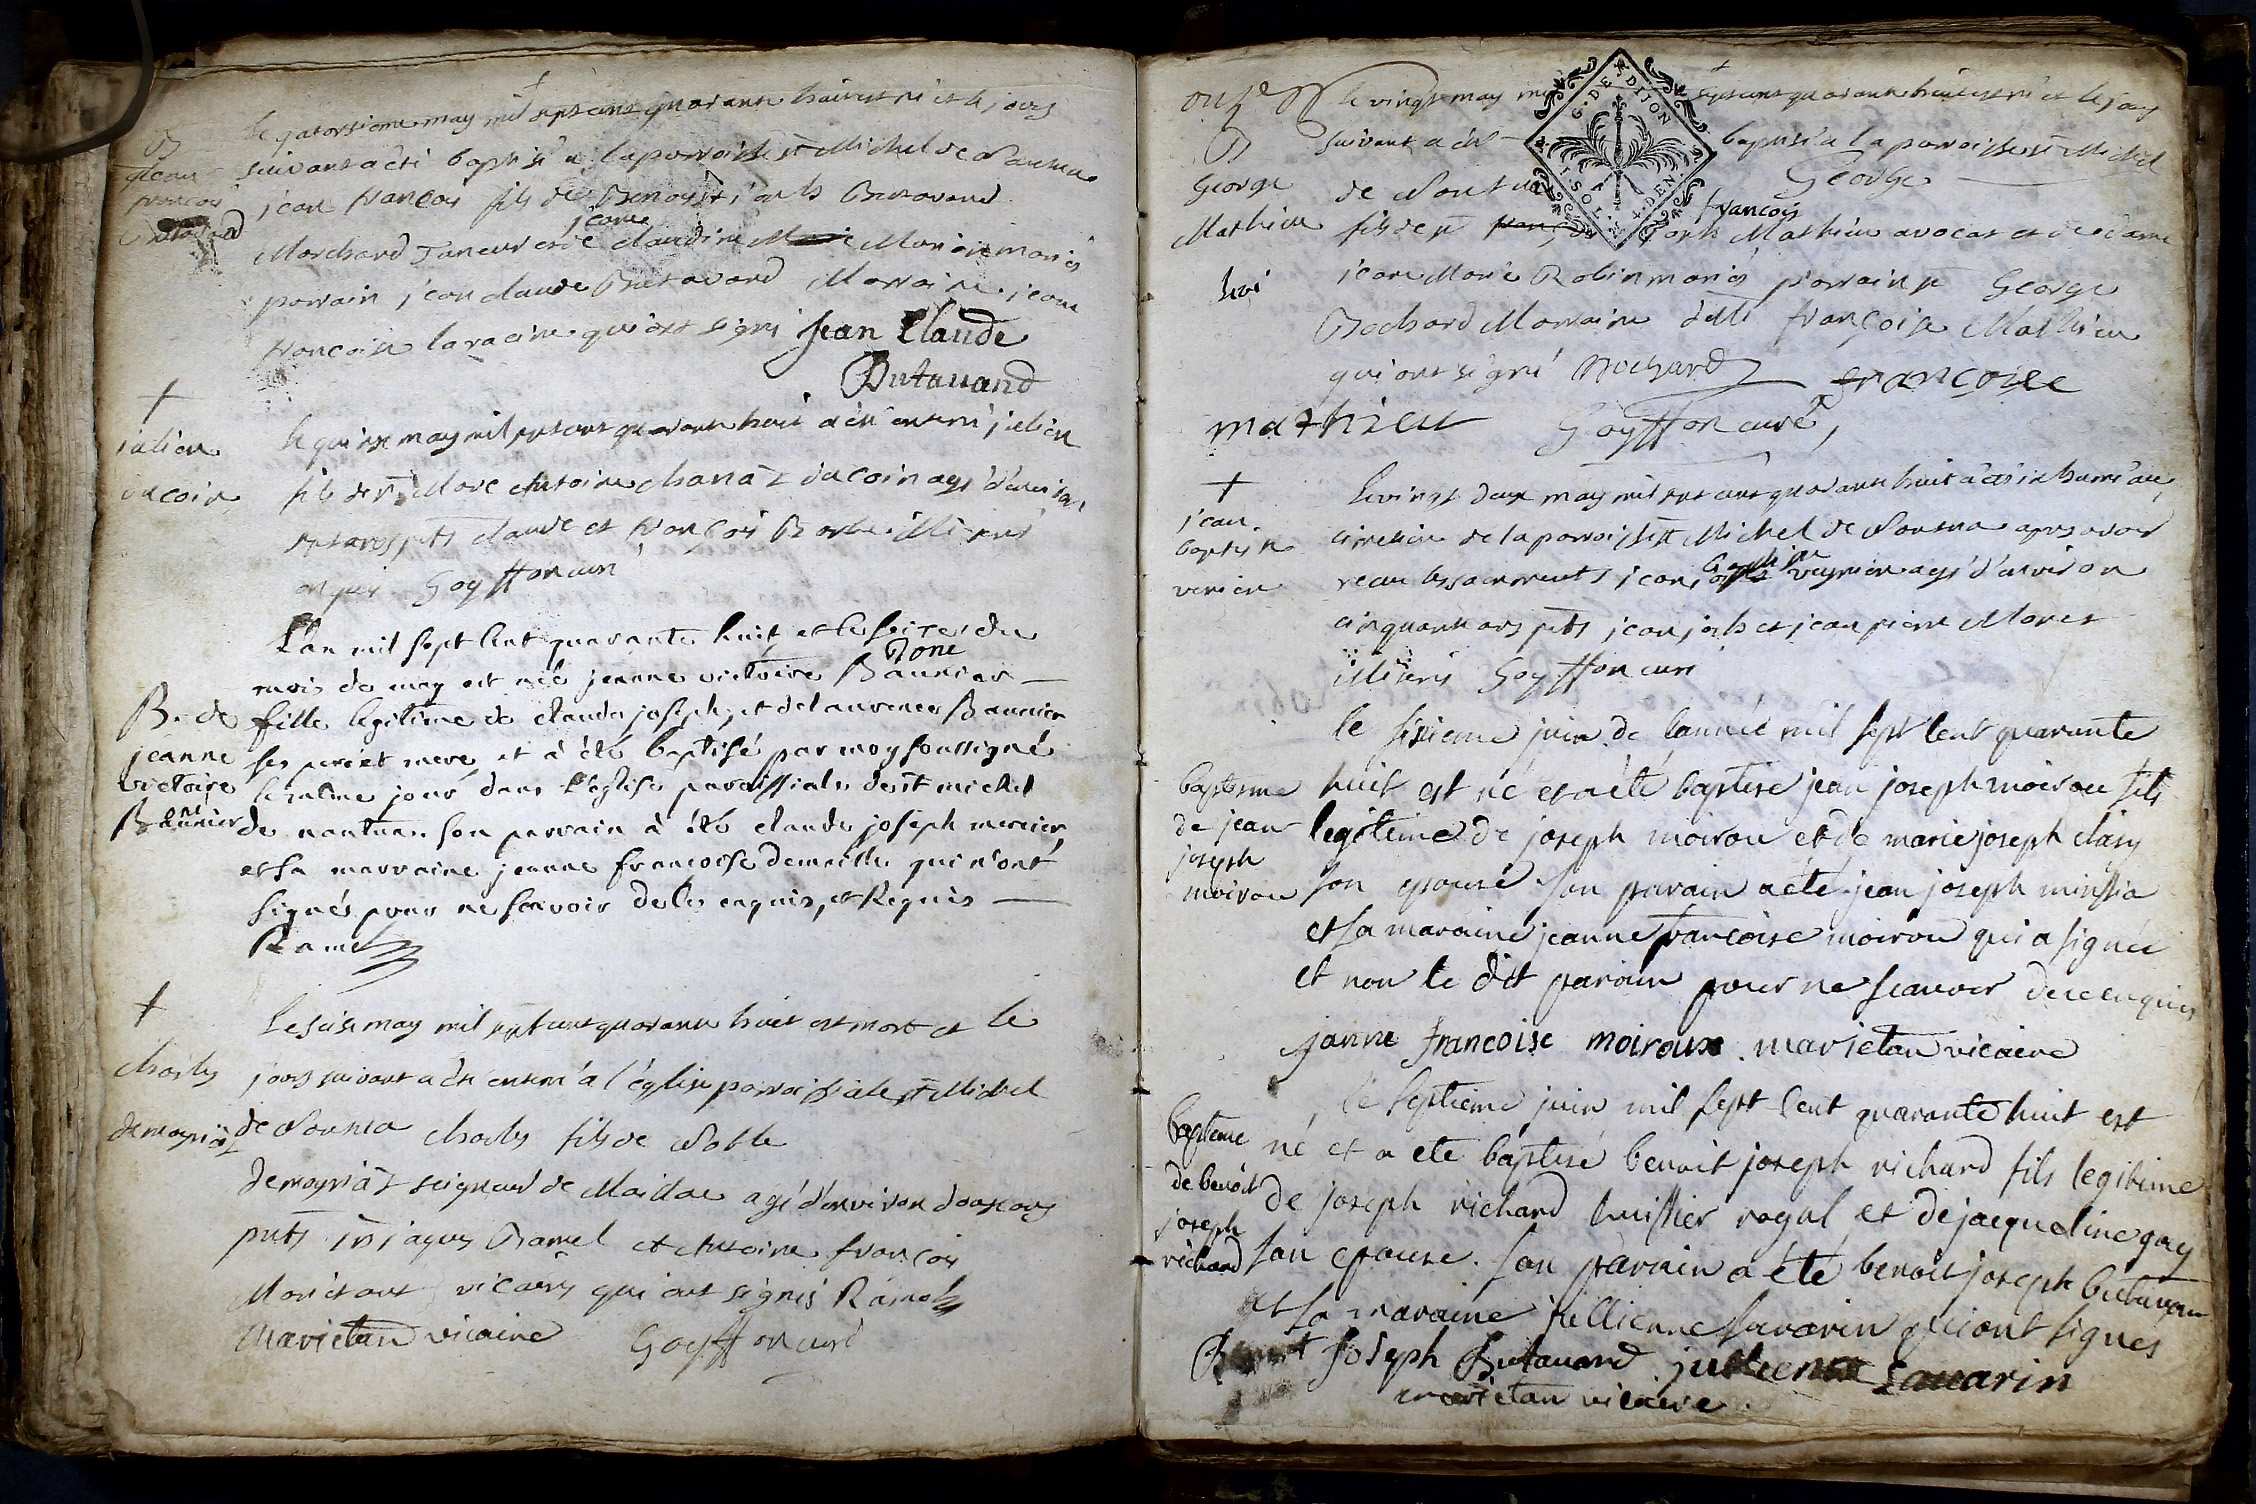 le quatorsieme may mil sept cent quarante huit est né et le jour
suivant a été baptisé a la parroisse st Michel de Nantua
B
jean
francois
Butavand
jean françois fils de Benoist joseph Butavand
Marchand Taneur et de jeanne claudine Marie Moriere mariés
parrain jean claude Butavand Marraine jeanne
françoise laracine qui ont signé Jean Claude
Butauand
+
julien
ducoin
le quinze may mil sept cent quarante huit a été enterré julien
fils de sr Marc Antoine chanaz ducoin agé d'environ
sept ans pnts claude et françois illiterés
enquis Goyffon curé
L'an mil sept Cent quarante huit, et le seize du
mois de may est née jeanne victoire Baunier
B. de
jeanne
victoire
Baunier
fille legitime de claude joseph, et de laurence Baunier
ses pere et mere, et à été baptisé par moy soussigné
le même jour dans l'église parroissiale de st michel
de nantua. son parrain à été claude joseph mercier,
et sa marraine jeanne françoise demaille qui n'ont
signés pour ne sçavoir de les enquis, et Requis
Ramel
+
charles
demoyriat
Le seise may mil sept cent quarante huit est mort et le
jour suivant a été enterré a l'église parroissiale st Michel
de Nantua charles fils de Noble
demoyriat seigneur de Maillac agé d'environ douse ans
pnts jaques Ramel et Antoine françois
Marietant vicaires qui ont signés Ramel
Marietan vicaire Goyffon curé
onze
G. DE DIJON
SOL. 4. DEN.
B
George
Mathieu
le vingt may mil sept cent quarante huit est né et le jour
suivant a été baptisé a la parroisse st Michel
de Nantua George
fils de sr françois joseph Mathieu avocat et de dame
jeanne Marie Robin mariés parrain sr George
Bochard Marraine dlle françoise Mathieu
qui ont signé Bochard françoise
mathieu Goyffon curé
+
jean
baptiste
vernier
le vingt deux may mil sept cent quarante huit a été inhumé au
cimetiere de la parroisse st Michel de Nantua apres avoir
receu les sacrements jean baptiste agé d'environ
cinquante ans pnts jean joseph et jean pierre Moret
illiterés Goyffon curé
le sisieme juin de l'année mil sept Cent quarante
baptesme
de jean
joseph
moirou
huit est né et a été baptisé jean joseph moirou fils
legitime de joseph moirou et de marie joseph clary
son epouse son parain a été jean joseph missia
et sa maraine jeanne francoise moirou qui a signée
et non le dit parain pour ne scauoir de ce enquis
janne francoise moiroux marietan vicaire
le septieme juin mil sept Cent quarante huit est
bapteme
de benoit
joseph
richard
né et a eté baptisé benoit joseph richard fils legitime
de joseph richard huissier royal et de jacqueline guy
son epouse. son parain a été benoit joseph butavan
et sa maraine jullienne savarin qui ont signes
Benoit Joseph Butauand jullienne Sauarin
marietan vicaire.